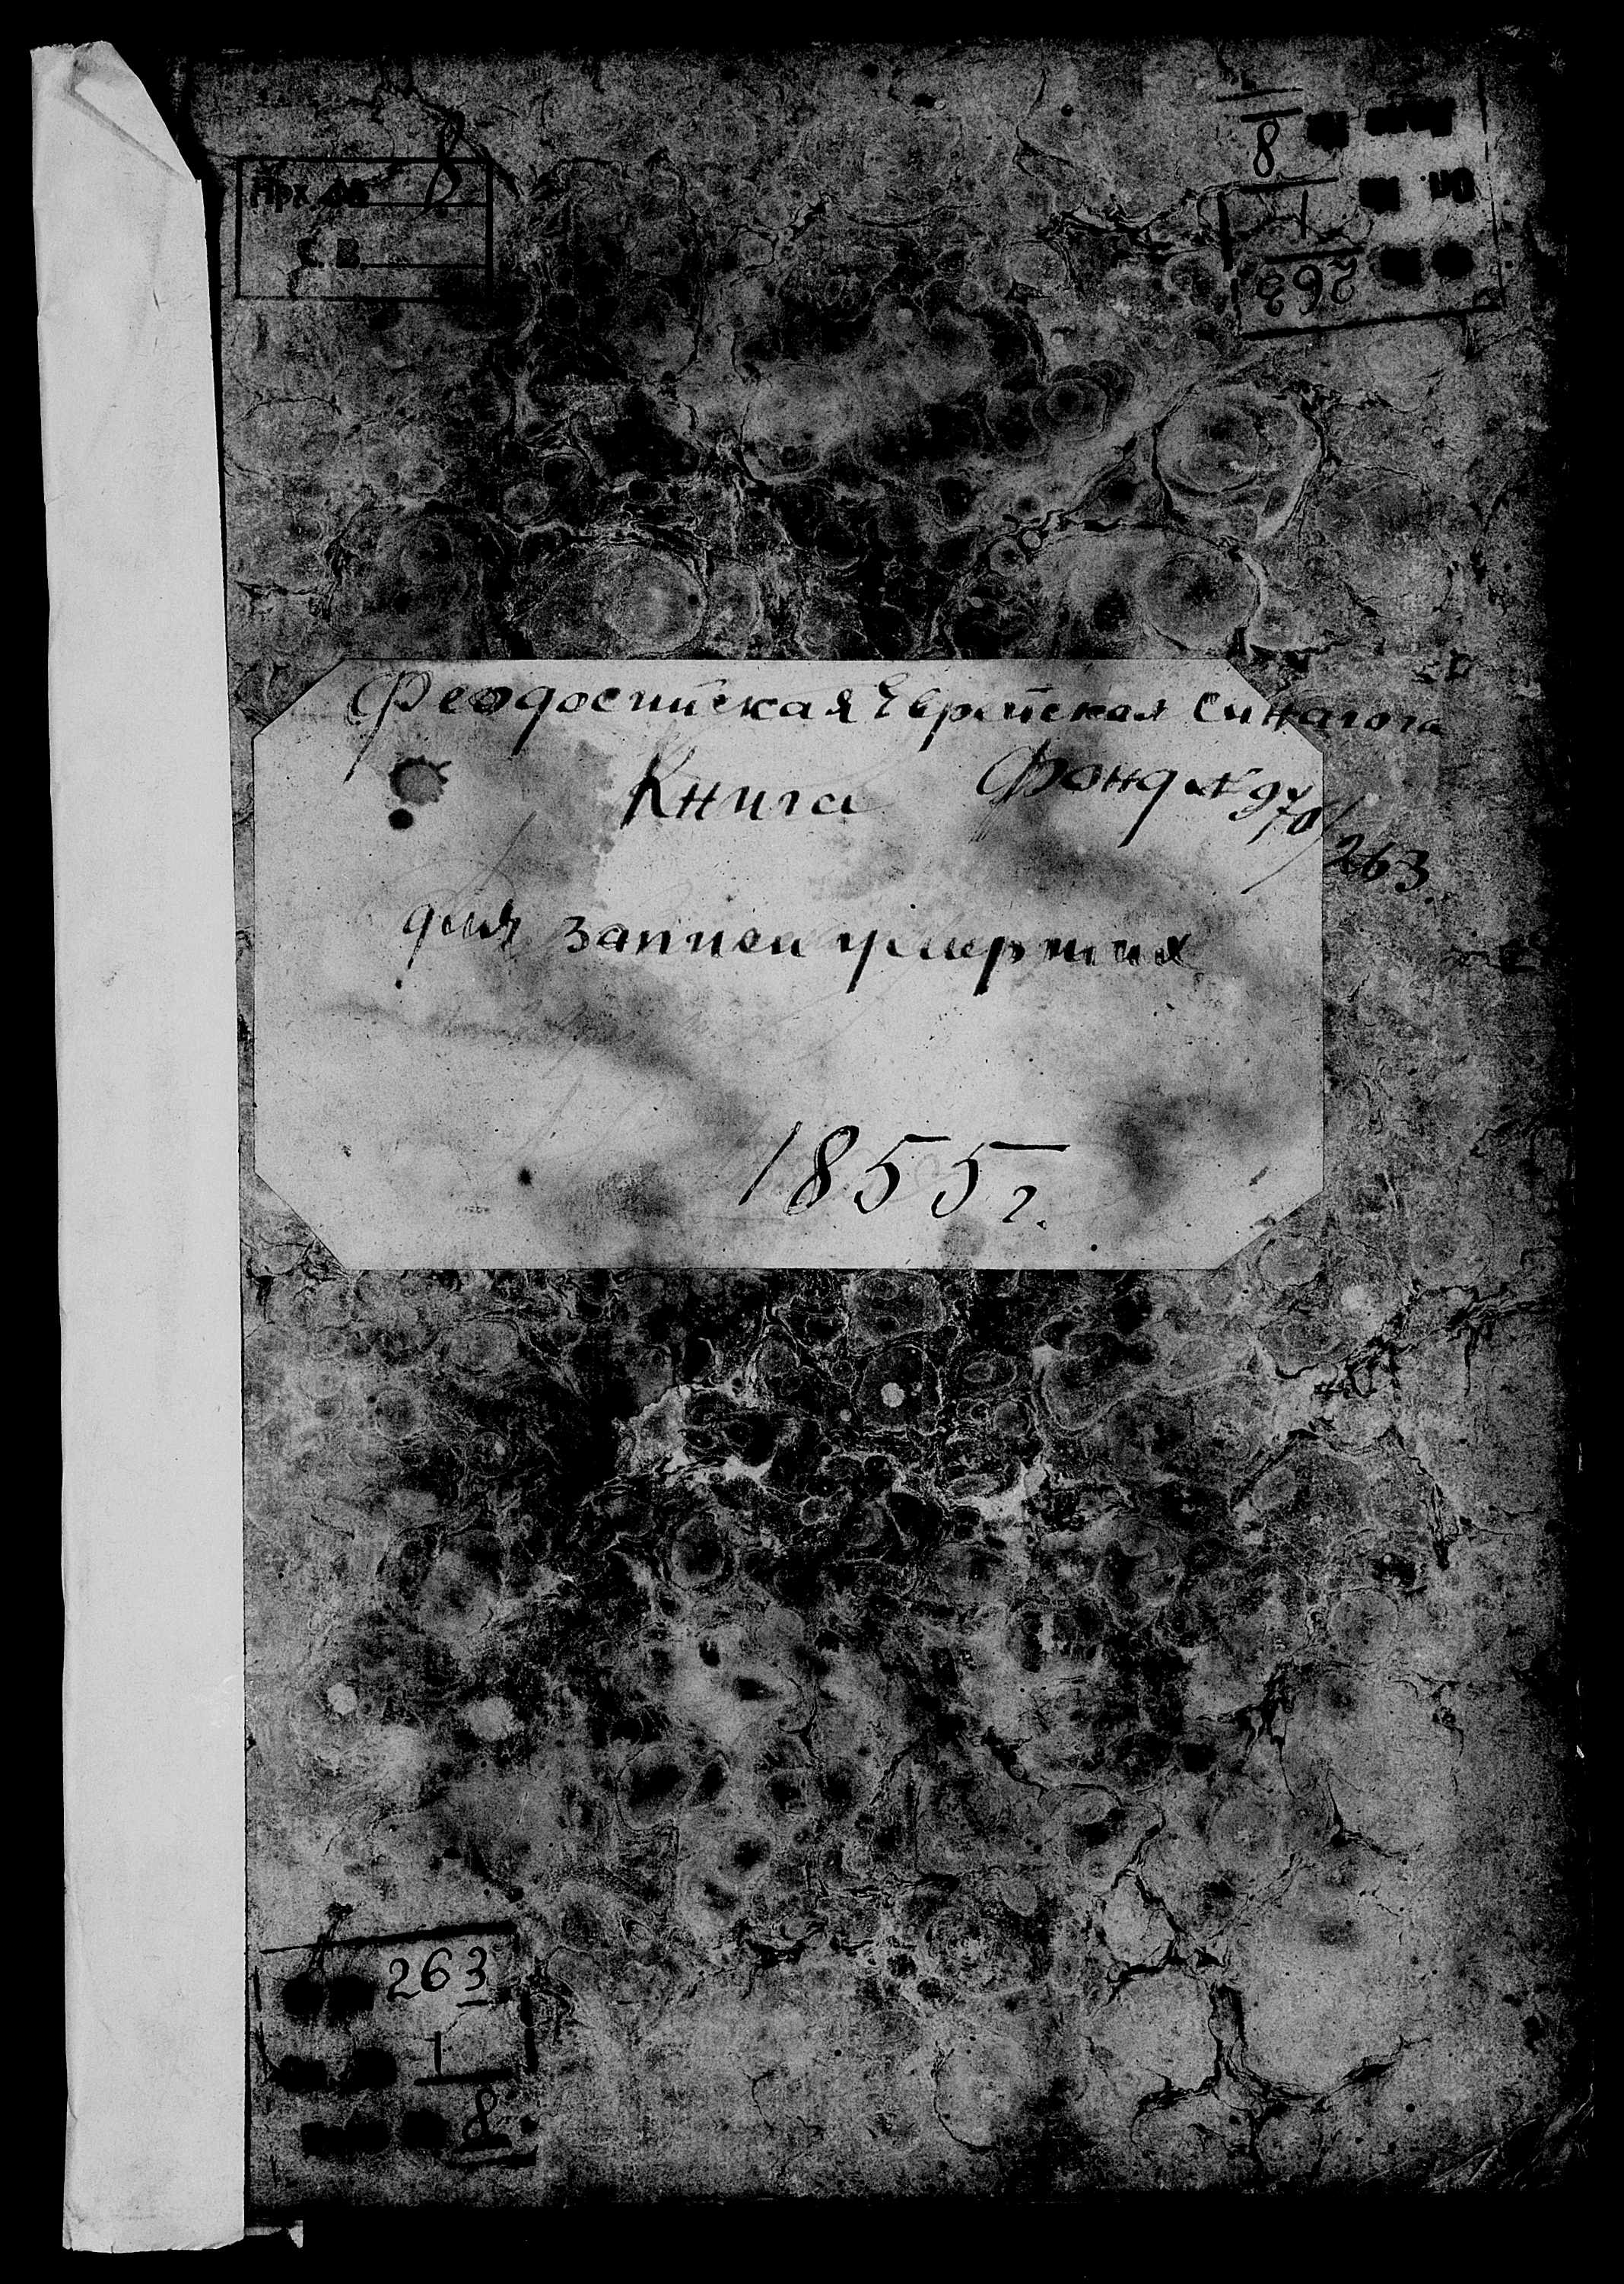 Арх. № 8
С. В.
8
Оп. № 1
263
Феодосийская Еврейская Синагога
Книга Фонд № 970/263
для записи умерших
1855 г.
263
1
8